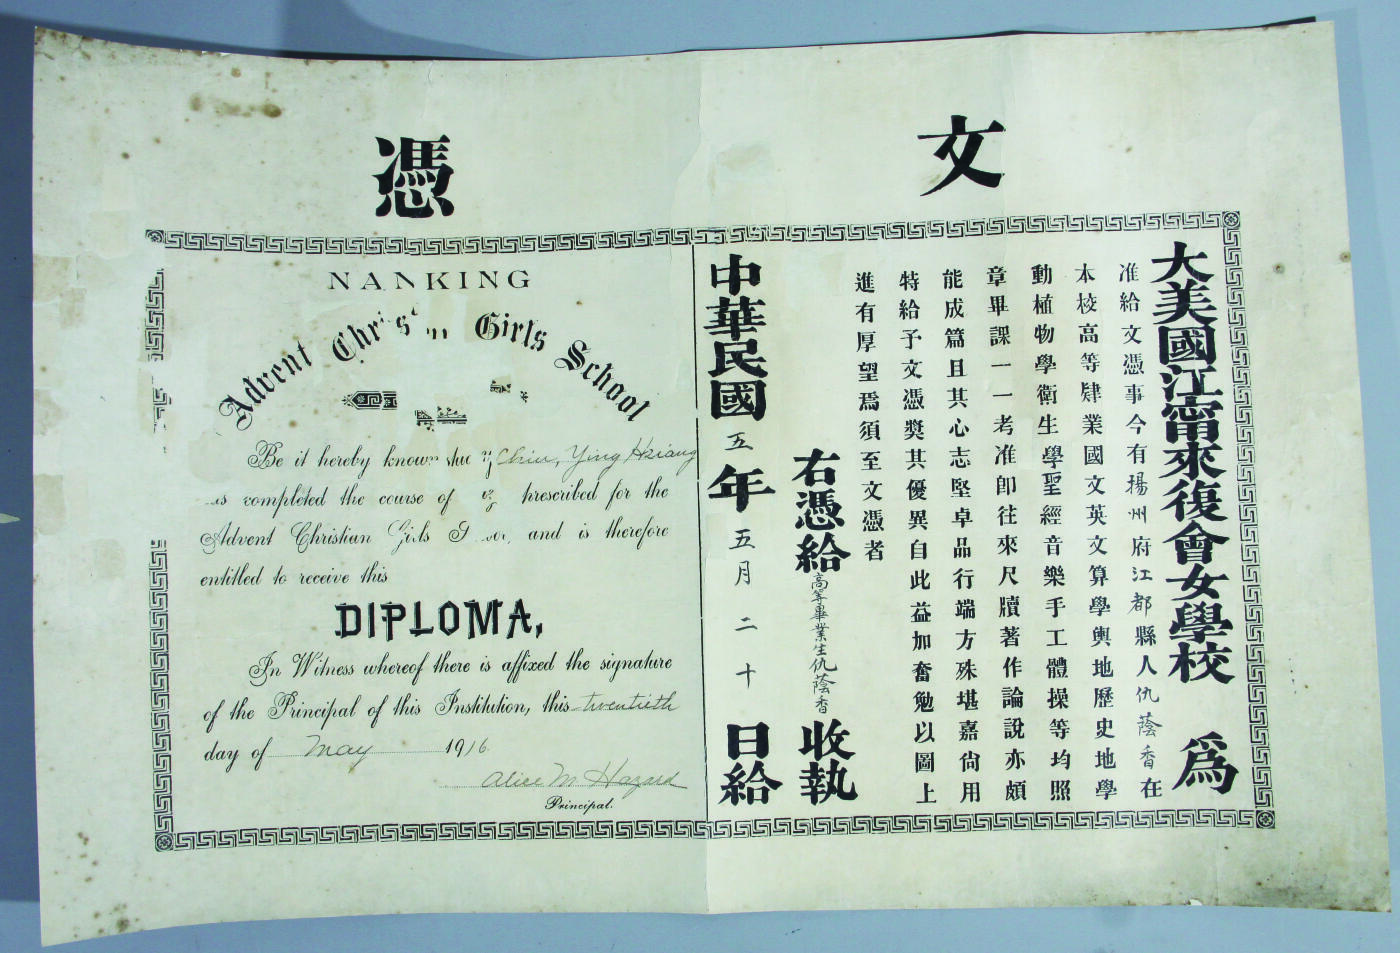 文憑
大美國江甯來復會女學校 爲
准給文憑事今有揚州府江都縣人仇蔭香在
本校高等肄業國文英文算學輿地歷史地學
動植物學衛生學聖經音樂手工體操等均照
章畢課一一考准卽往來尺牘著作論說亦頗
能成篇且其心志堅卓品行端方殊堪嘉尙用
特給予文憑奬其優異自此益加奮勉以圖上
進有厚望焉須至文憑者
右憑給高等畢業生仇蔭香收執
中華民國五年五月二十日給
NANKING
Advent Girls School
Be it hereby known Chiu, Ying Hsiang
completed the course of prescribed for the
Advent Christian Girls and is therefore
entitled to receive this
DIPLOMA,
In Witness whereof there is affixed the signature
of the Principal of this Institution, this twentieth
day of May 1916
Alice M. Hazard
Principal.